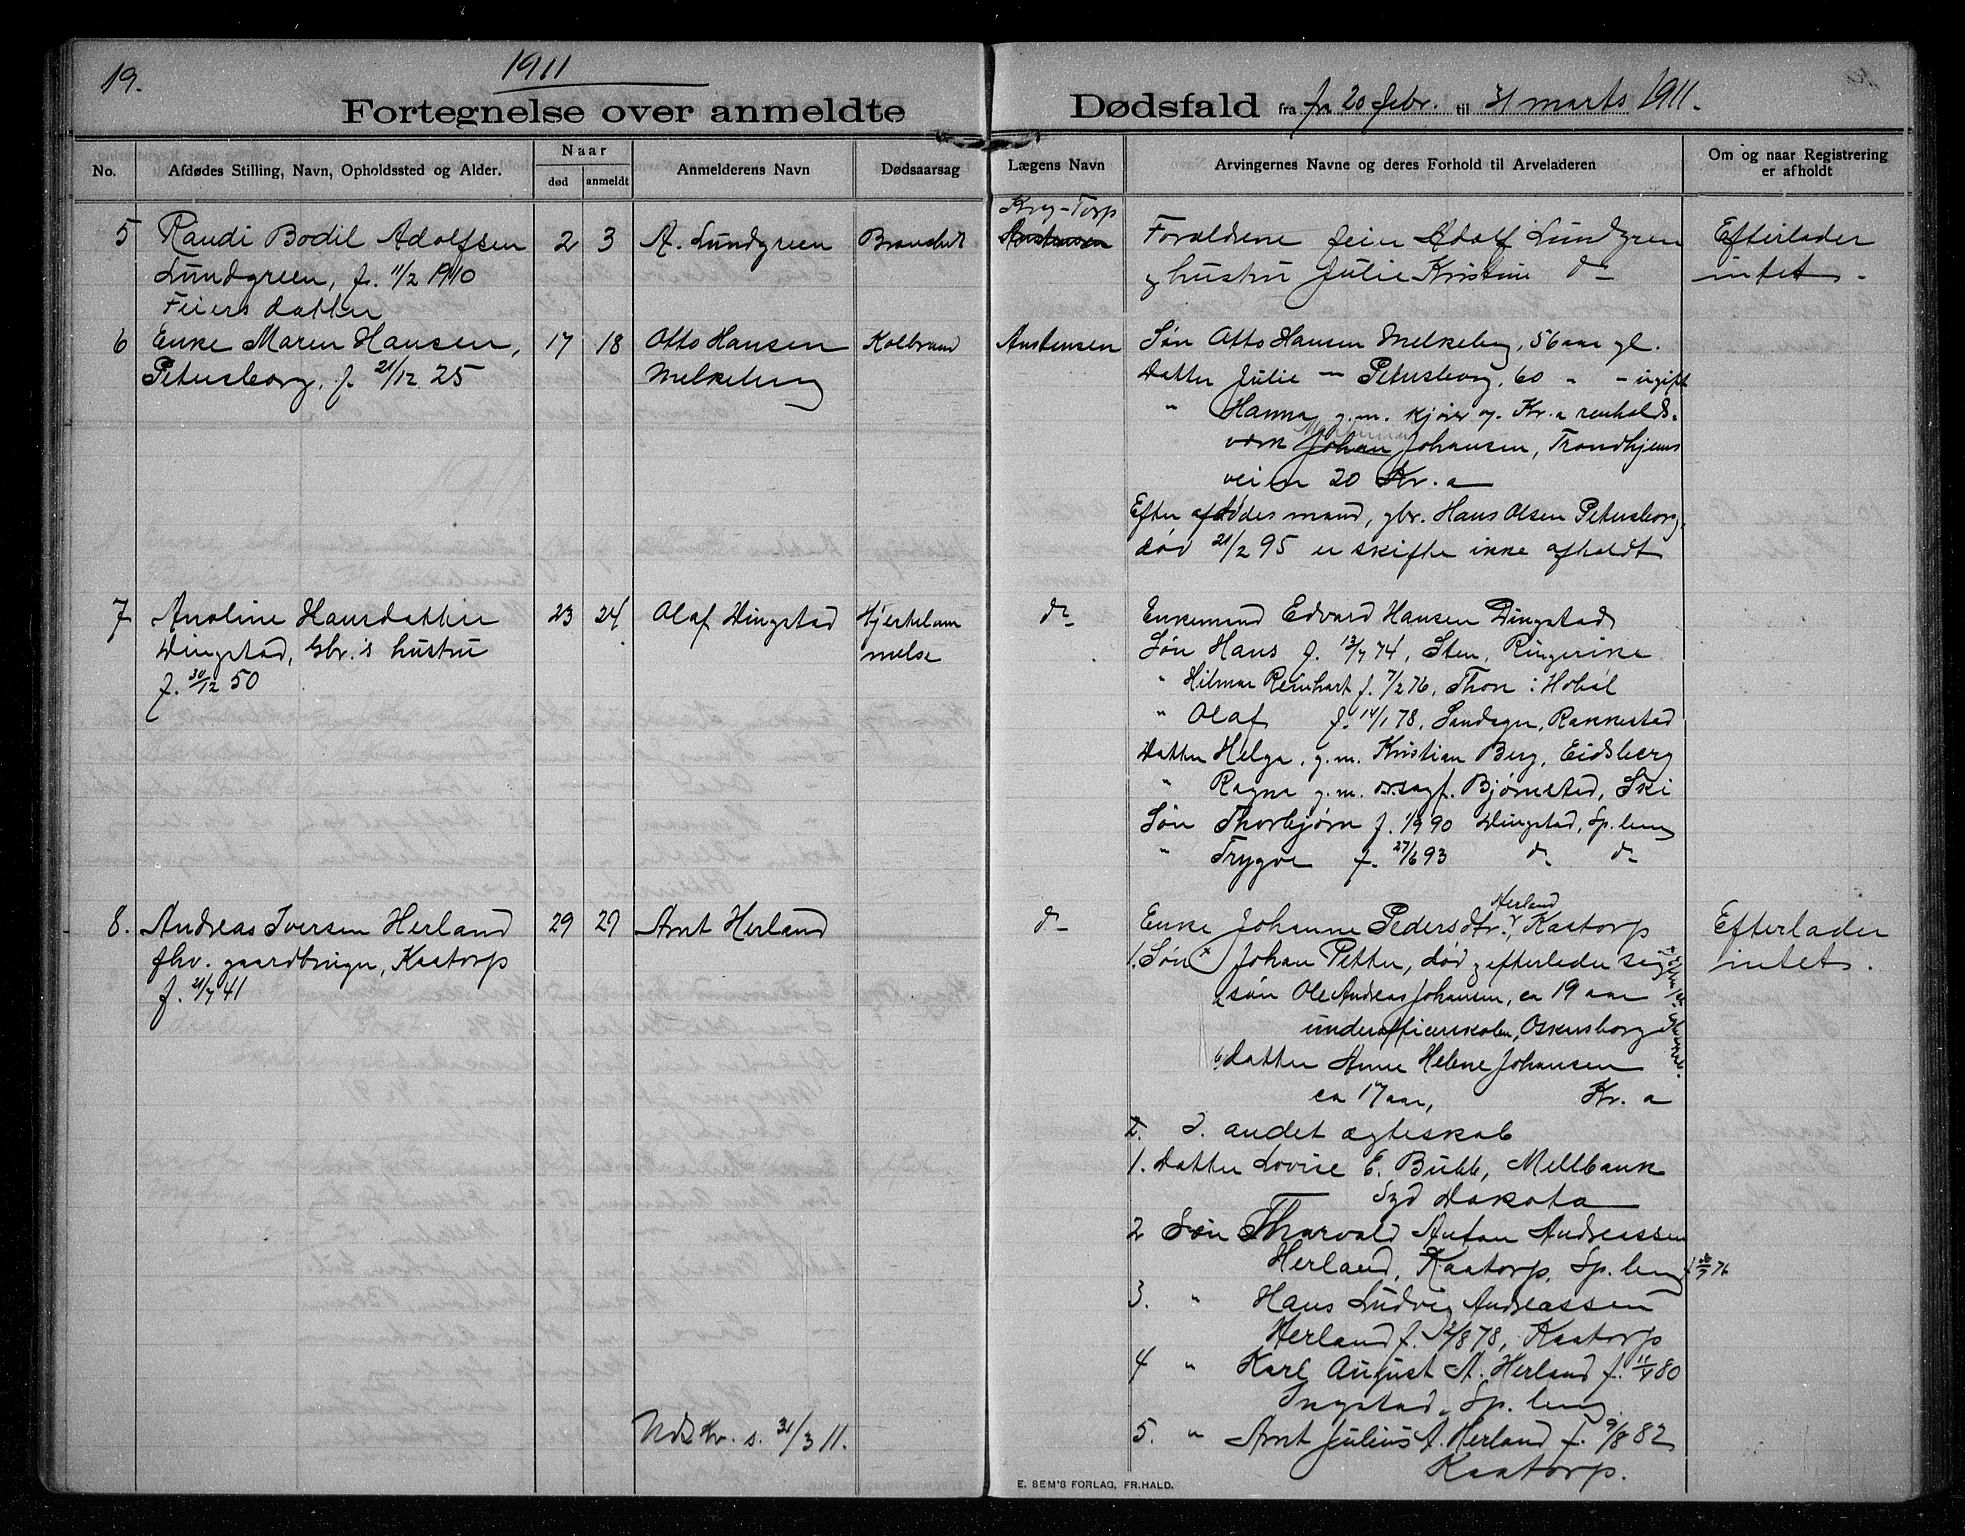 19.
1911
Fortegnelse over anmeldte
Dødsfald fra fra 20 febr. til 31 marts 1911.
No. Afdødes Stilling, Navn, Opholdssted og Alder. Naar død anmeldt Anmelderens Navn Dødsaarsag Lægens Navn Arvingernes Navne og deres Forhold til Arveladeren Om og naar Registrering er afholdt
5 Randi Bodil Adolfsen 2 3 A. Lundgreen Brandsår
Lundgreen, f. 11/2 1910
Feiers datter
Krog-Torp
Forældrene feier Adolf Lundgren Efterlader
og hustru Julie Kristine do intet.
6 Enke Maren Hansen, 17 18 Otto Hansen Koldbrand Anstensen Søn Otto Hansen Melkeberg, 56 aar gl.
Petersborg, f. 21/12 25 Melkeberg Datter Julie — Petersborg, 60 " - ugift
" Hanna g.m. kjører og Kr.a renholds-
værk Johan Johansen, Trondhjems
veien 20 Kr. a
Efter afdødes mand, gbr. Hans Olsen Petersborg,
død 21/2 95 er skifte ikke afholdt
7 Anoline Hansdatter 23 24 Olaf Dingstad Hjertelam do Enkemand Edvard Hansen Dingstad
Dingstad, Gbr.'s hustru melse Søn Hans f. 13/7 74, Sten, Ringerike
f. 30/12 50 " Hilmar Reinhart f. 7/2 76, Thon i Hobøl
" Olaf f. 14/1 78, Sandager, Rakkestad
Datter Helga, g.m. Kristian Berg, Eidsberg
" Ragna g.m. o.r.sagf. Bjørnstad, Ski
Søn Thorbjørn f. 1/9 90 Dingstad, Sp.berg
" Trygve f. 27/6 93 do do
8. Andreas Iversen Herland 29 29 Arnt Herland do Enke Johanne Pedersdtr. Herland, Kaatorp Efterlader
fhv. gaardbruger, Kaatorp 1. Søn Johan Petter, død og efterleder sig intet.
f. 21/7 41 søn Ole Andreas Johansen, ca 19 aar
underofficerskolen, Oskarsborg
datter Anne Helene Johansen
ca 17 aar, Kr. a
2. I. andet ægteskab
1. Datter Lovise E. Bubb, Mellbank
Syd Dakota
2 Søn Tharvald Anton Andreassen
Herland, Kaatorp, Sp. berg
3. " Hans Ludvig Andreassen
Herland f. 12/8 78, Kaatorp
4 " Karl August A. Herland f. 11/4 80
Ingstad, Sp. berg
5. " Arnt Julius A. Herland f. 9/8 82
Kaatorp.
31/3 11.
E. SEM'S FORLAG, FR.HALD.